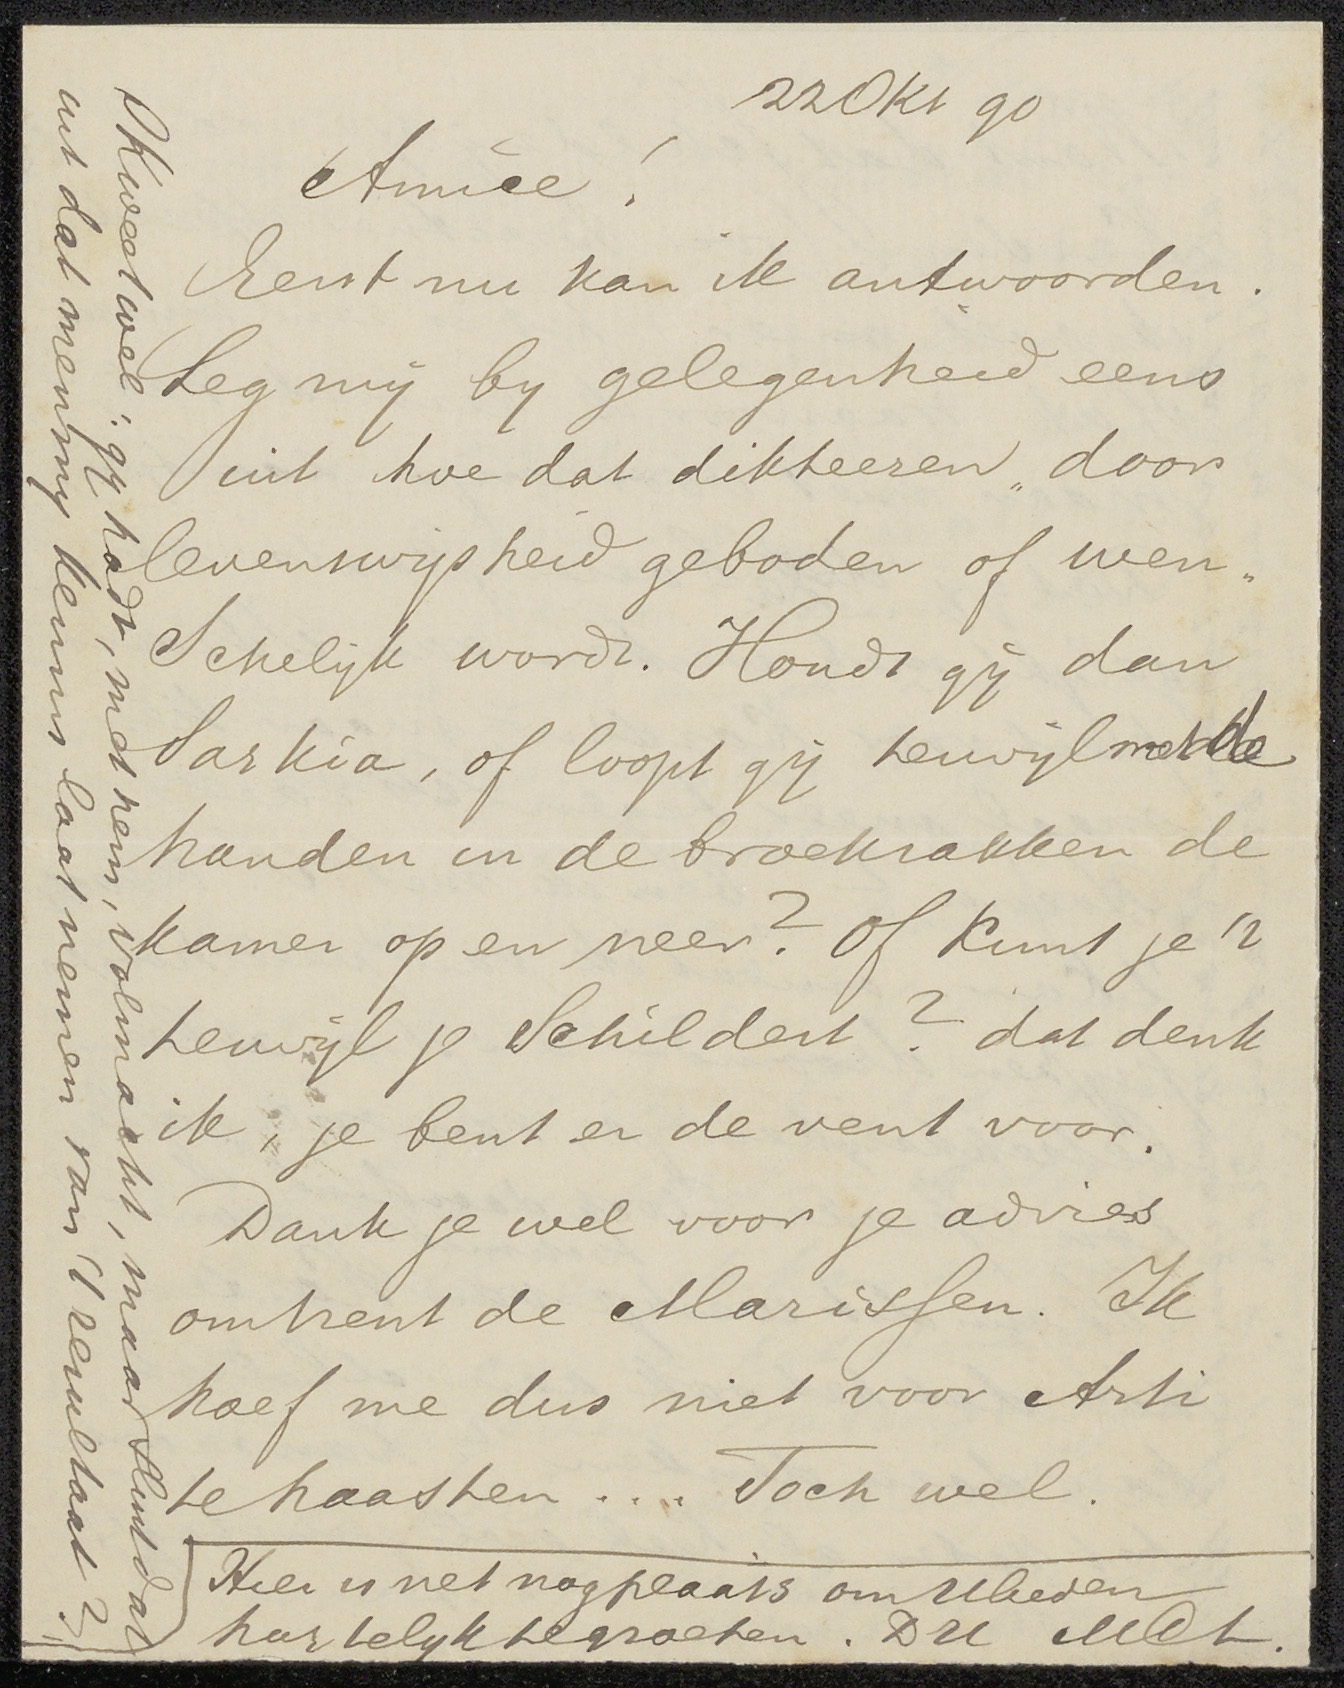 22 Okt 90
Amice!
Eerst nu kan ik antwoorden.
Leg mij by gelegenheid eens
uit hoe dat dikteeren „door
levenswijsheid geboden of wen„
schelijk wordt. Houdt gij dan
Saskia, of loopt gij terwijl met de
handen in de broekzakken de
kamer op en neer? Of kunt je 't
terwijl je schildert? dat denk
ik, je bent er de vent voor.
Dank je wel voor je advies
omtrent de Marissen. Ik
hoef me dus niet voor Arti
te haasten .... Toch wel.
Hier is net nog plaats om Ulieden
hartelyk te groeten. DU MCt.
Ik weet wel: gy hadt, met hem, volmacht, maar sluit dat
uit dat men my kennis laat nemen van 't resultaat?